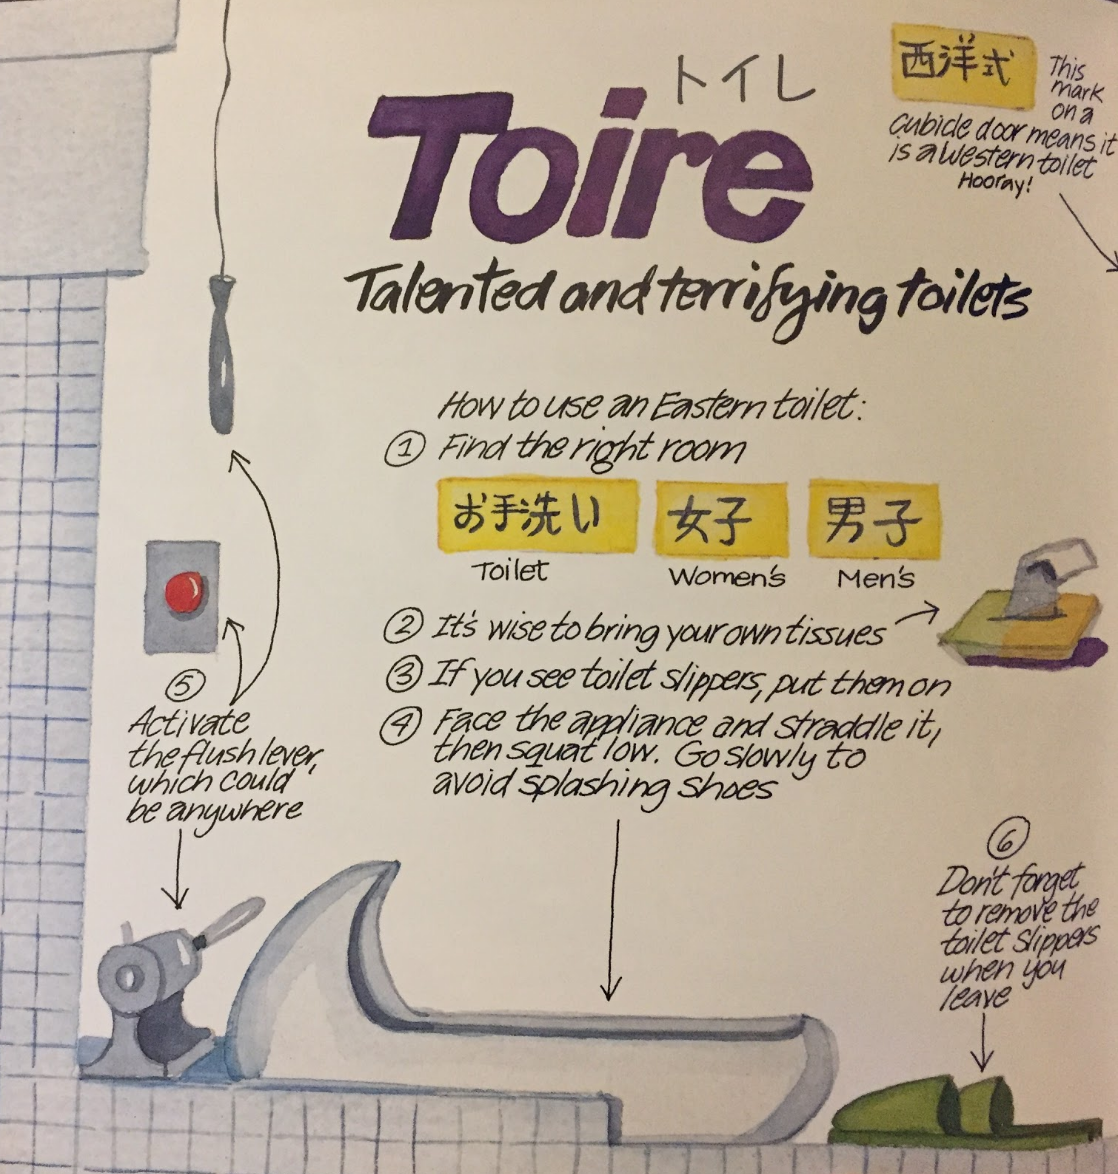 トイレ
Toire
Talented and terrifying toilets
西洋式
This
mark
on a
cubicle door means it
is a Western toilet
Hooray!
How to use an Eastern toilet:
① Find the right room
お手洗い
Toilet
女子
Women's
男子
Men's
② It's wise to bring your own tissues
③ If you see toilet slippers, put them on
④ Face the appliance and straddle it,
then squat low. Go slowly to
avoid splashing shoes
⑤
Activate
the flush lever,
which could
be anywhere
⑥
Don't forget
to remove the
toilet slippers
when you
leave